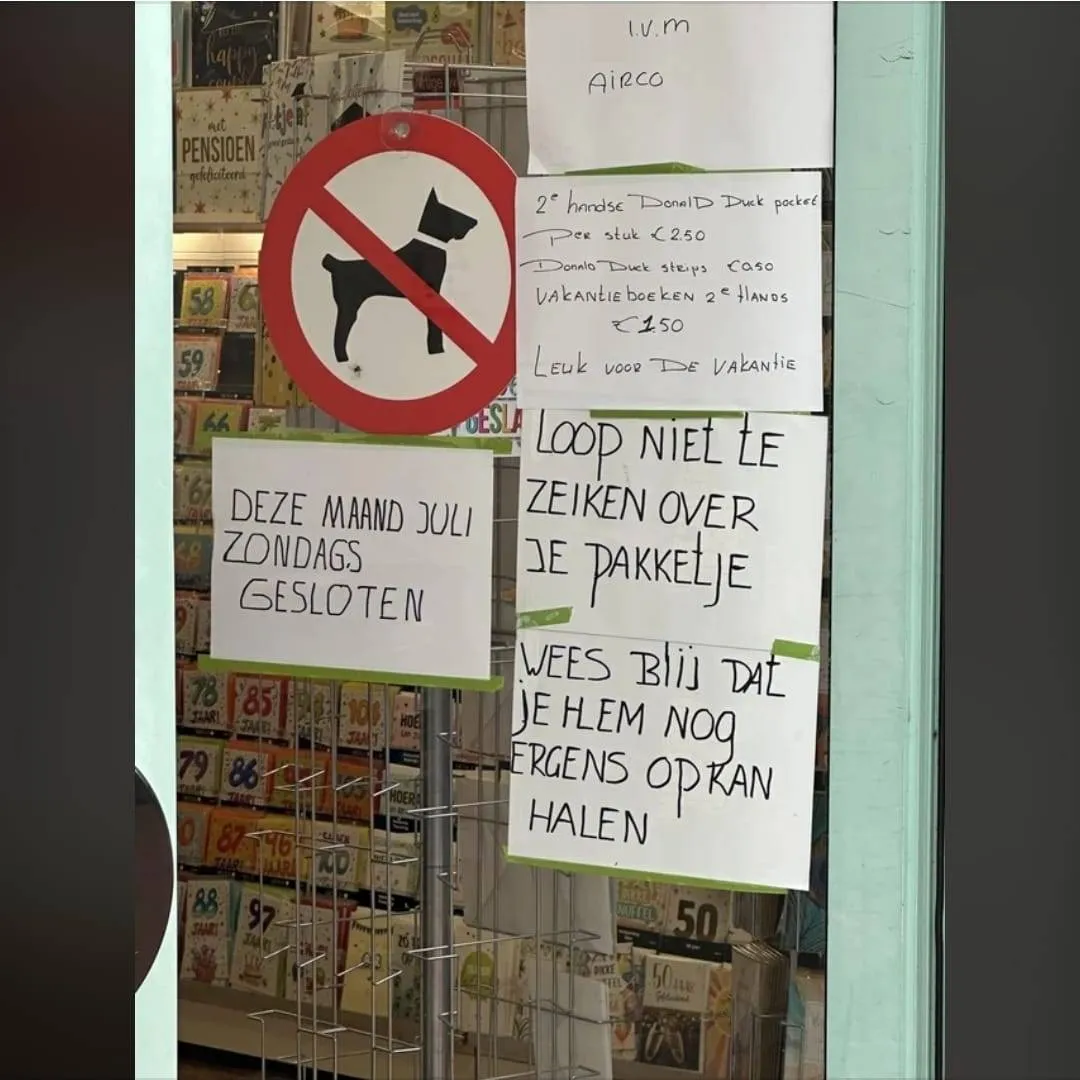 I.V.M
AIRCO
2e handse Donald Duck pocket
Per stuk € 2.50
Donald Duck strips €0.50
VAKANTIEBOEKEN 2e HANDS
€ 1.50
LEUK VOOR DE VAKANTIE
LOOP NIET TE
ZEIKEN OVER
JE PAKKETJE
WEES BLIJ DAT
JE HEM NOG
ERGENS OP KAN
HALEN
DEZE MAAND JULI
ZONDAGS
GESLOTEN
happy
met
PENSIOEN
gefeliciteerd
58
59
66
67
78
JAAR!
85
JAAR!
79
86
87
JAAR!
96
JAAR!
100
88
JAAR!
97
JAAR!
50
50 JAAR